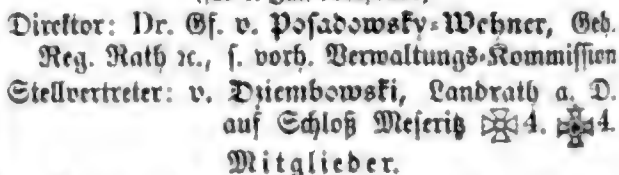 Direktor: Dr. Gf. v. Posadowsky-Wehner, Geh.
Reg. Rath ꝛc., s. vorh. Verwaltungs-Kommission
Stellvertreter: v. Dziembowski, Landrath a. D.
auf Schloß Meseritz 4. 4.
Mitglieder.